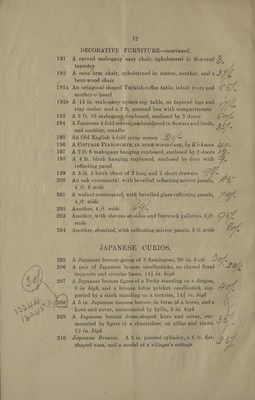 12
DECORATIVE FURNITURE—continued.
191 A carved mahogany easy chair, upholstered in flowered tapestry
192 A cane arm chair, upholstered in cotton, another, and a bent-wood chair
192A An octagonal-shaped Turkish coffee table, inlaid ivory and mother-o'-pearl
192B A 15 in. mahogany square-top table, on tapered legs and tray under, and a 2 ft. grained box with compartments
193 A 2 ft. 10 mahogany cupboard, enclosed by 2 doors
194 A Japanese 4-fold screen, embroidered in flowers and birds, and another, smaller
195 An Old English 4-fold scrap screen
196 A COTTAGE PIANOFORTE, IN ROSEWOOD CASE, by Kirkman
197 A 2 ft. 6 mahogany hanging cupboard, enclosed by 2 doors
198 A 4 ft. birch hanging cupboard, enclosed by door with reflecting panel
199 A 3 ft. 4 birch chest of 3 long and 2 short drawers
200 An oak overmantel, with bevelled reflecting mirror panels, 4 ft. 8 wide
201 A walnut overmantel, with bevelled glass reflecting panels, 4 ft. wide
202 Another, 4 ft. wide
203 Another, with shelves at sides and fretwork galleries, 5 ft. wide
204 Another, ebonized, with reflecting mirror panels, 5 ft. wide
JAPANESE CURIOS.
205 A Japanese bronze group of 3 flamingoes, 20 in. high
206 A pair of Japanese bronze candlesticks, on chased floral supports and circular bases, 14½ in. high
207 A Japanese bronze figure of a Deity standing on a dragon, 9 in. high, and a bronze lotus pricket candlestick, supported by a stork standing on a tortoise, 14¾ in. high
208 A 5 in. Japanese incense burner, in form of a horse, and a koro and cover, surmounted by kylin, 9 in. high
209 A Japanese bronze drum-shaped koro and cover, surmounted by figure of a chanticleer, on pillar and stand, 12 in. high
210 Japanese Bronzes. A 5 in. pierced cylinder, a 6 in. flat-shaped vase, and a model of a villager's cottage